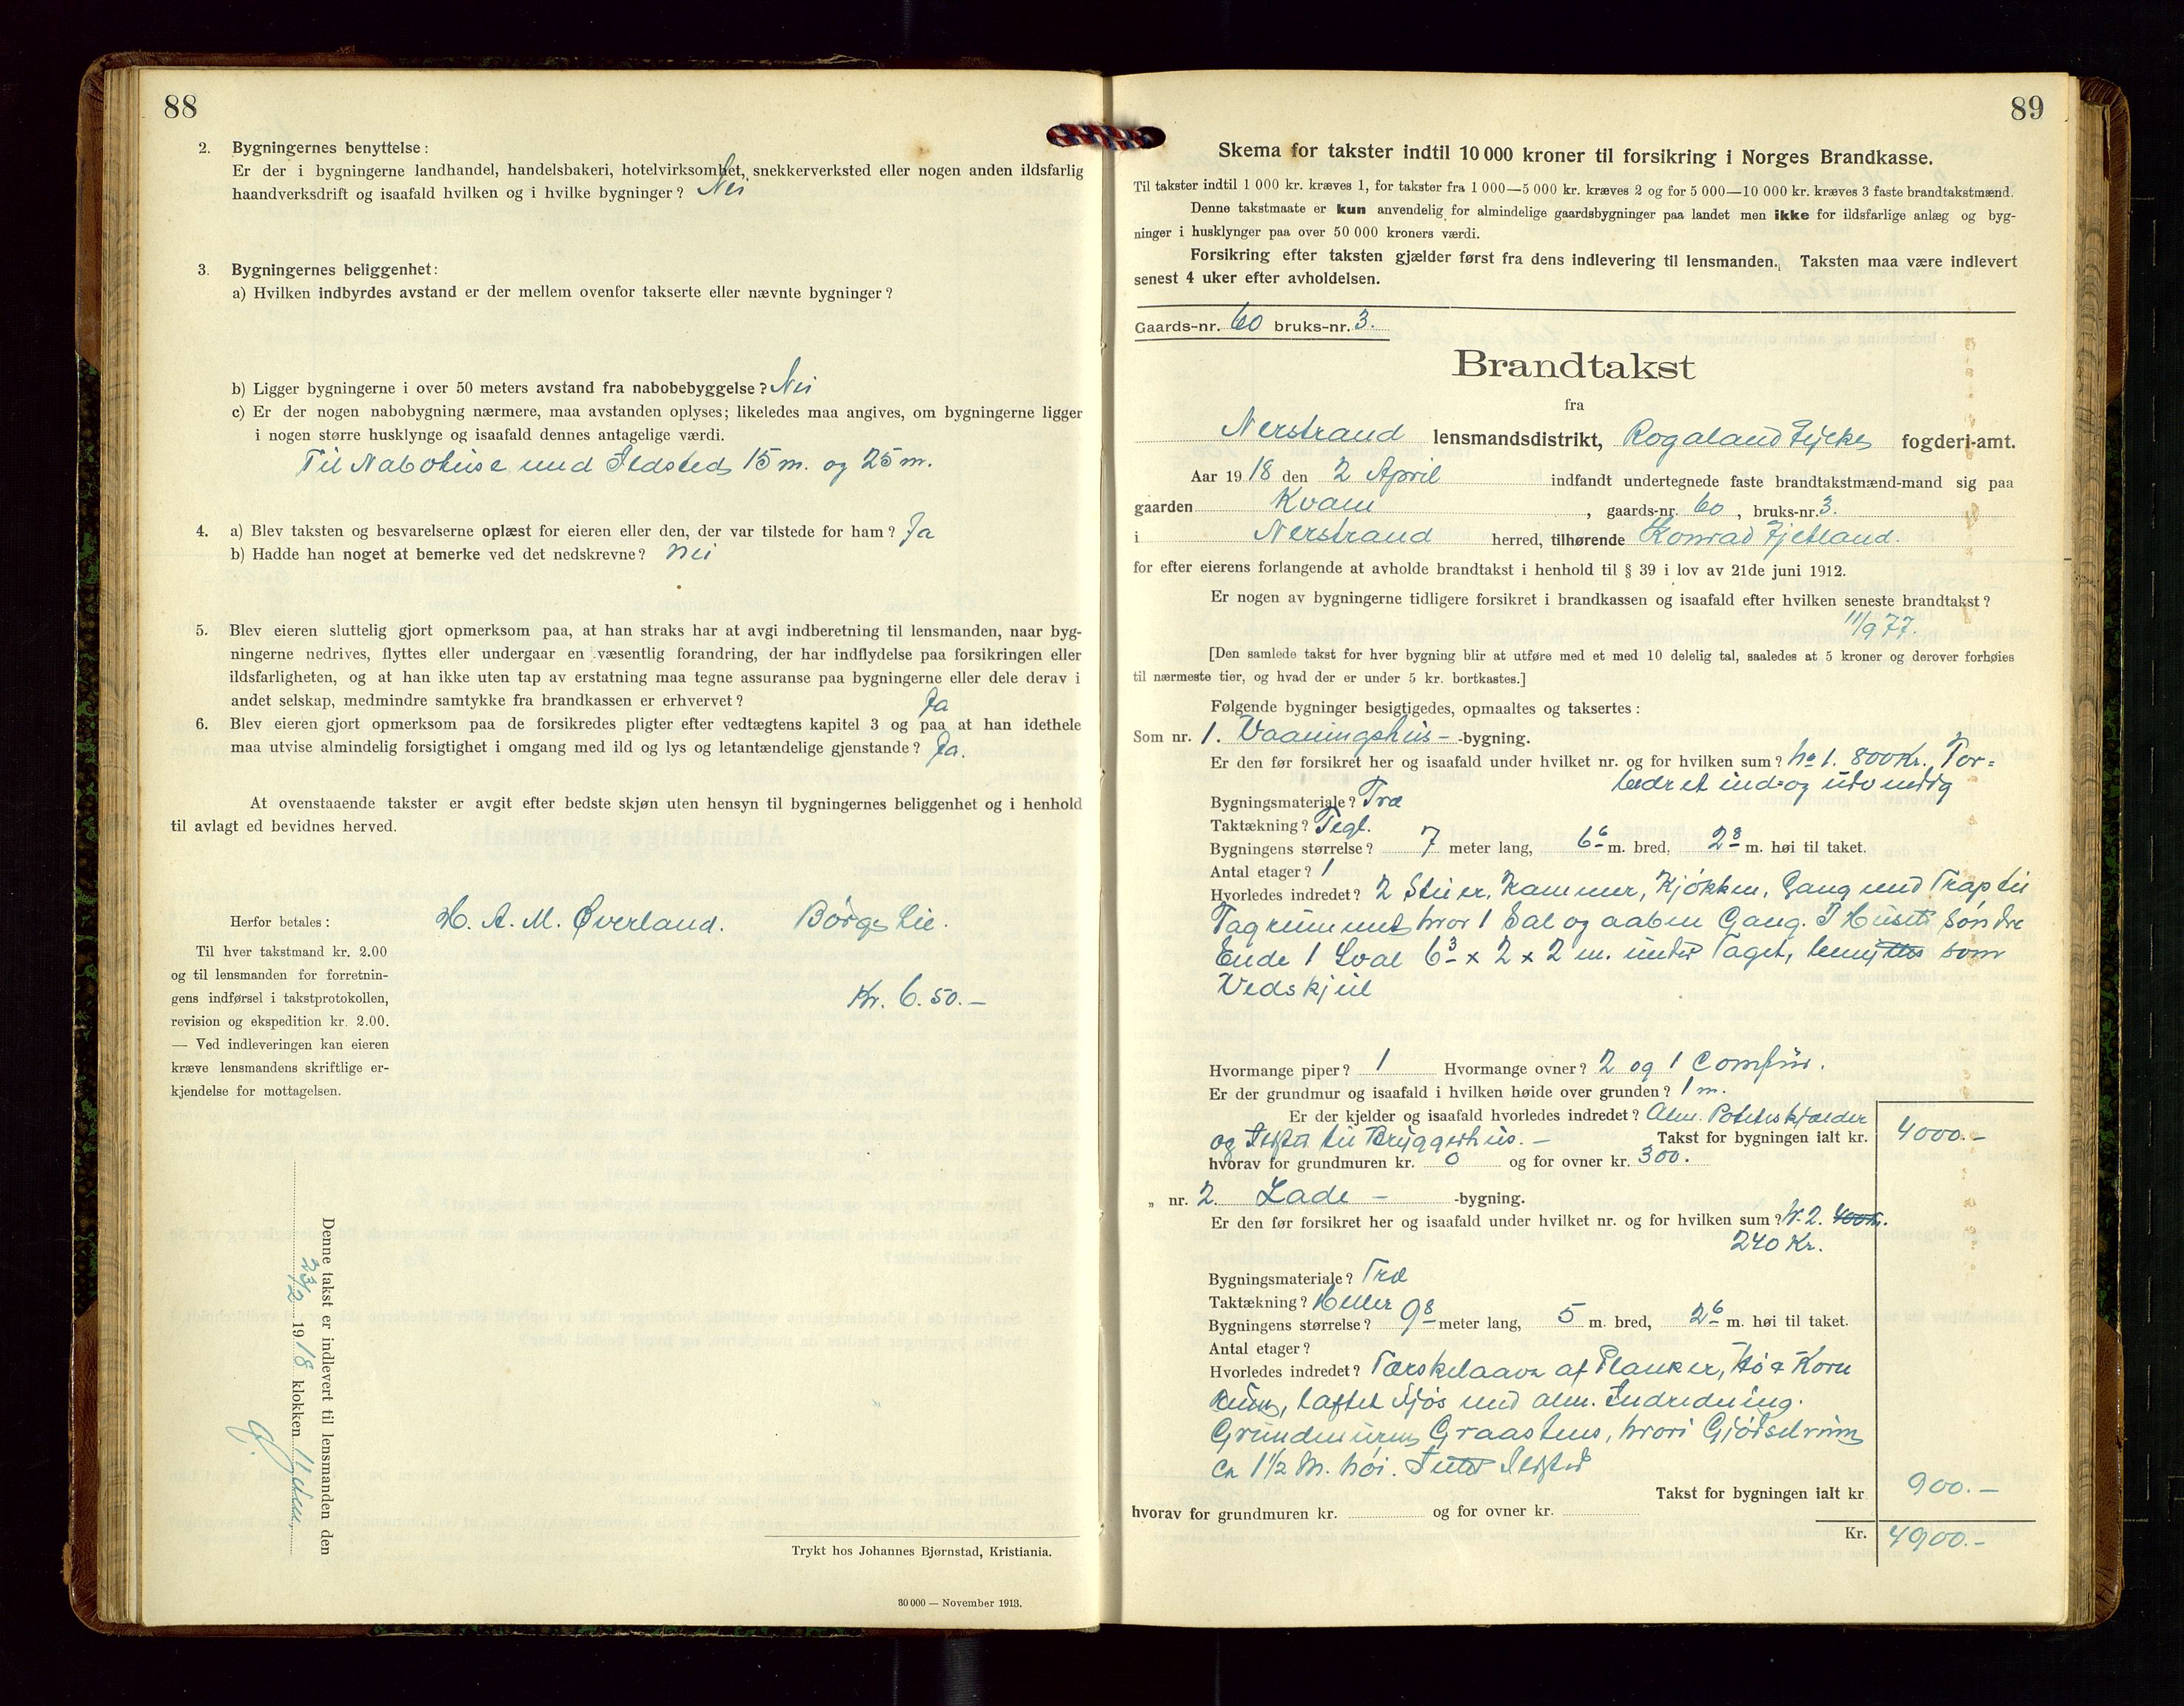 88
2. Bygningernes benyttelse:
Er der i bygningerne landhandel, handelsbakeri, hotelvirksomhet, snekkerverksted eller nogen anden ildsfarlig
haandverksdrift og isaafald hvilken og i hvilke bygninger? Nei
3. Bygningernes beliggenhet:
a) Hvilken indbyrdes avstand er der mellem ovenfor takserte eller nævnte bygninger?
b) Ligger bygningerne i over 50 meters avstand fra nabobebyggelse? Nei
c) Er der nogen nabobygning nærmere, maa avstanden oplyses; likeledes maa angives, om bygningerne ligger
i nogen større husklynge og isaafald dennes antagelige værdi.
Til Nabohuse med Ildsted 15 m. og 25 m.
4. a) Blev taksten og besvarelserne oplæst for eieren eller den, der var tilstede for ham? Ja
b) Hadde han noget at bemerke ved det nedskrevne? Nei
5. Blev eieren sluttelig gjort opmerksom paa, at han straks har at avgi indberetning til lensmanden, naar byg-
ningerne nedrives, flyttes eller undergaar en væsentlig forandring, der har indflydelse paa forsikringen eller
ildsfarligheten, og at han ikke uten tap av erstatning maa tegne assuranse paa bygningerne eller dele derav i
andet selskap, medmindre samtykke fra brandkassen er erhvervet? Ja
6. Blev eieren gjort opmerksom paa de forsikredes pligter efter vedtægtens kapitel 3 og paa at han idethele
maa utvise almindelig forsigtighet i omgang med ild og lys og letantændelige gjenstande? Ja.
At ovenstaaende takster er avgit efter bedste skjøn uten hensyn til bygningernes beliggenhet og i henhold
til avlagt ed bevidnes herved.
H. A. M. Øverland. Børge Lie.
Kr. 6.50.-
Herfor betales:
Til hver takstmand kr. 2.00
og til lensmanden for forretnin-
gens indførsel i takstprotokollen,
revision og ekspedition kr. 2.00.
— Ved indleveringen kan eieren
kræve lensmandens skriftlige er-
kjendelse for mottagelsen.
Denne takst er indlevert til lensmanden den
23/12 1918 klokken
Trykt hos Johannes Bjørnstad, Kristiania.
30 000 — November 1913.
89
Skema for takster indtil 10 000 kroner til forsikring i Norges Brandkasse.
Til takster indtil 1 000 kr. kræves 1, for takster fra 1 000—5 000 kr. kræves 2 og for 5 000—10 000 kr. kræves 3 faste brandtakstmænd.
Denne takstmaate er kun anvendelig for almindelige gaardsbygninger paa landet men ikke for ildsfarlige anlæg og byg-
ninger i husklynger paa over 50 000 kroners værdi.
Forsikring efter taksten gjælder først fra dens indlevering til lensmanden. Taksten maa være indlevert
senest 4 uker efter avholdelsen.
Gaards-nr. 60 bruks-nr. 3.
Brandtakst
fra
Nerstrand lensmandsdistrikt, Rogaland Fylkes fogderi-amt.
Aar 1918 den 2 April indfandt undertegnede faste brandtakstmænd-mand sig paa
gaarden Kvam, gaards-nr. 60, bruks-nr. 3.
i Nerstrand herred, tilhørende Konrad Fjetland.
for efter eierens forlangende at avholde brandtakst i henhold til § 39 i lov av 21de juni 1912.
Er nogen av bygningerne tidligere forsikret i brandkassen og isaafald efter hvilken seneste brandtakst?
11/9 77.
[Den samlede takst for hver bygning blir at utføre med et med 10 delelig tal, saaledes at 5 kroner og derover forhøies
til nærmeste tier, og hvad der er under 5 kr. bortkastes.]
Følgende bygninger besigtigedes, opmaaltes og taksertes:
Som nr. 1. Vaaningshus- -bygning.
Er den før forsikret her og isaafald under hvilket nr. og for hvilken sum? No 1. 800 Kr. For=
bedret ind-og udvendig
Bygningsmateriale? Træ
Taktækning? Tegl.
Bygningens størrelse? 7 meter lang, 6 6 m. bred, 2 8 m. høi til taket.
Antal etager? 1
Hvorledes indredet? 2 Stuer, Kammer, Kjøkken, Gang med Trap til
Tagrummet hvor 1 Sal og aaben Gang. I Husets Søndre
Ende 1 Sval 6 3 x 2 x 2 m. under Taget, benyttes som
Vedskjul
Hvormange piper? 1 Hvormange ovner? 2 og 1 Comfur.
Er der grundmur og isaafald i hvilken høide over grunden? 1 m.
Er der kjelder og isaafald hvorledes indredet? Alm. Poteteskjælder
og Ildsted til Bryggerhus. - Takst for bygningen ialt kr. 4000.-
hvorav for grundmuren kr. 0 og for ovner kr. 300.
„ nr. 2. Lade - -bygning.
Er den før forsikret her og isaafald under hvilket nr. og for hvilken sum? N. 2. 400 Kr.
240 Kr.
Bygningsmateriale? Træ
Taktækning? Heller
Bygningens størrelse? 9 8 meter lang, 5 m. bred, 2 6 m. høi til taket.
Antal etager?
Hvorledes indredet? Tærskelaave af Planker, Hø & Korn
Rum, laftet Fjøs med alm. Indredning.
Grundmuren Graastens, hvori Gjødselrum
ca 1½ M. høi. Intet Ildsted
Takst for bygningen ialt kr 900.-
hvorav for grundmuren kr. og for ovner kr.
Kr. 4900.-